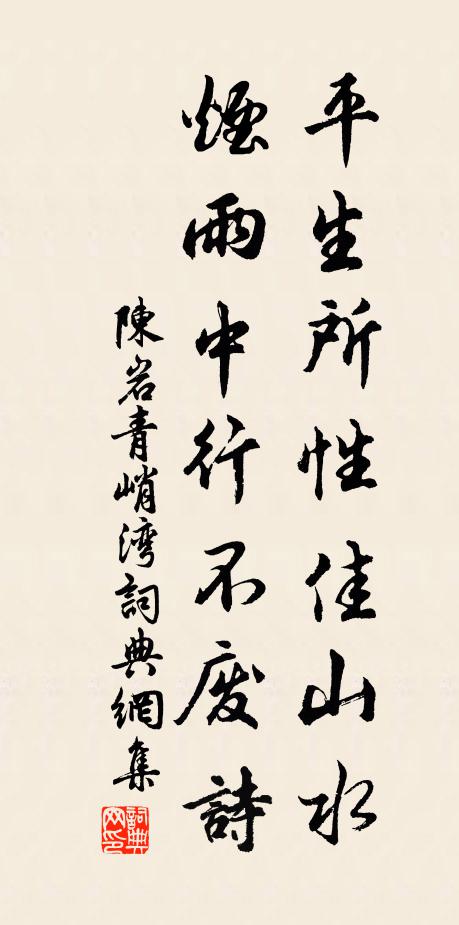 平生所性佳山水
煙雨中行不废詩
陳岩青峭湾詞典網集
詞典网印